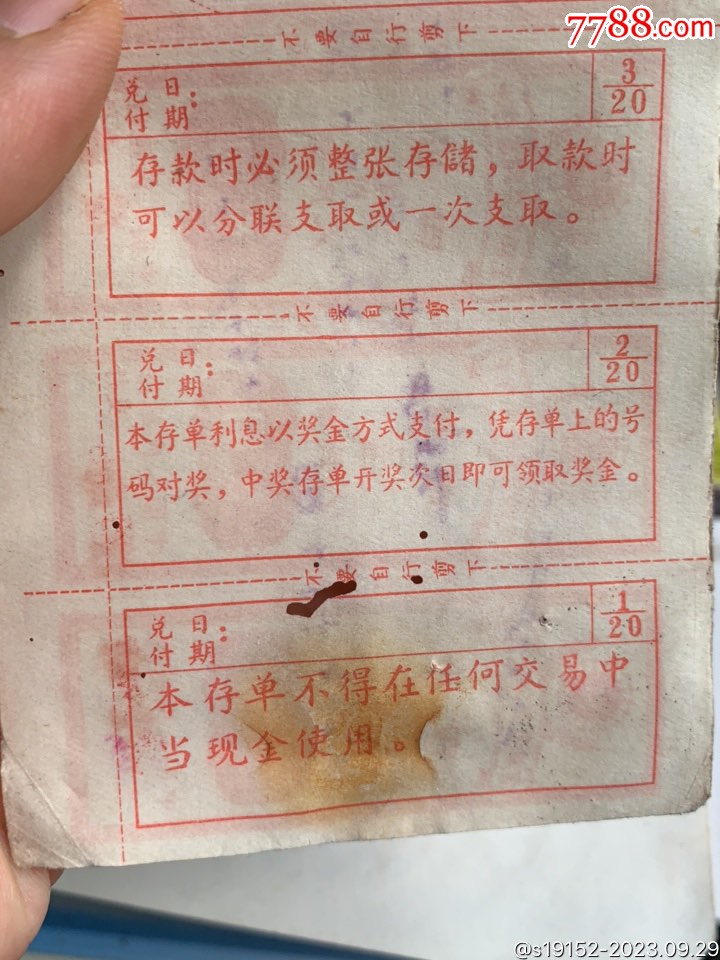 7788.com
不要自行剪下
兑付日期：
3/20
存款时必须整张存储，取款时
可以分联支取或一次支取。
不要自行剪下
兑付日期：
2/20
本存单利息以奖金方式支付，凭存单上的号
码对奖，中奖存单开奖次日即可领取奖金。
不要自行剪下
兑付日期：
1/20
本存单不得在任何交易中
当现金使用。
@s19152-2023.09.29